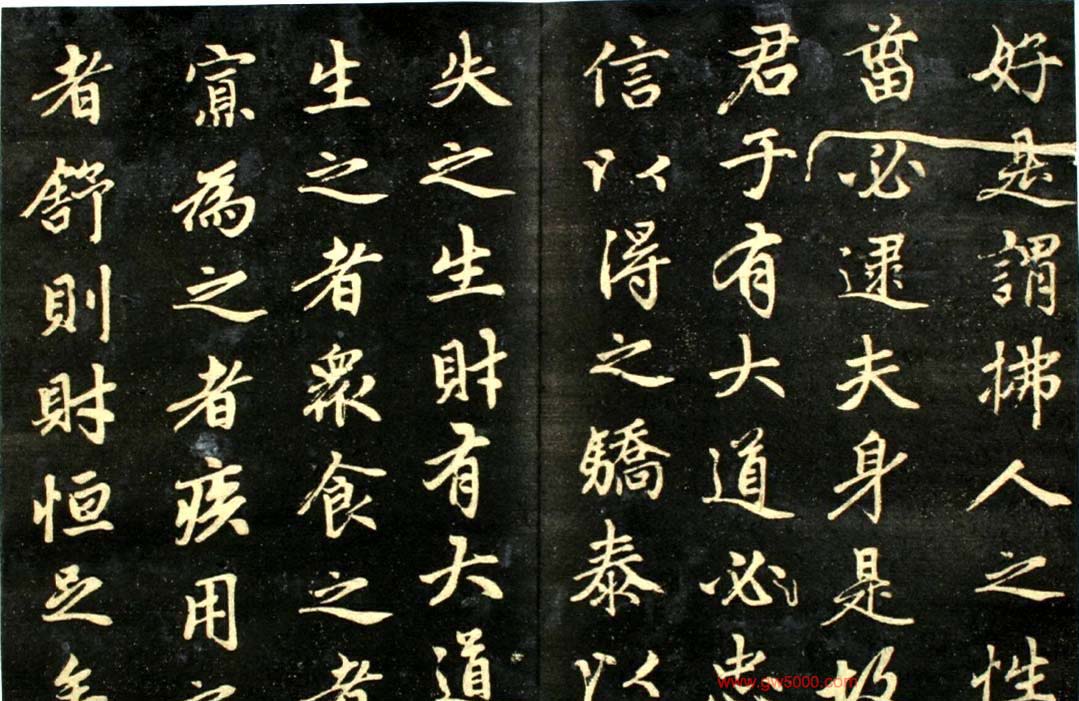 好是謂拂人之性
菑必逮夫身是故
君子有大道必忠
信以得之驕泰以
失之生財有大道
生之者眾食之者
寡為之者疾用之
者舒則財恒足矣
www.gw5000.com